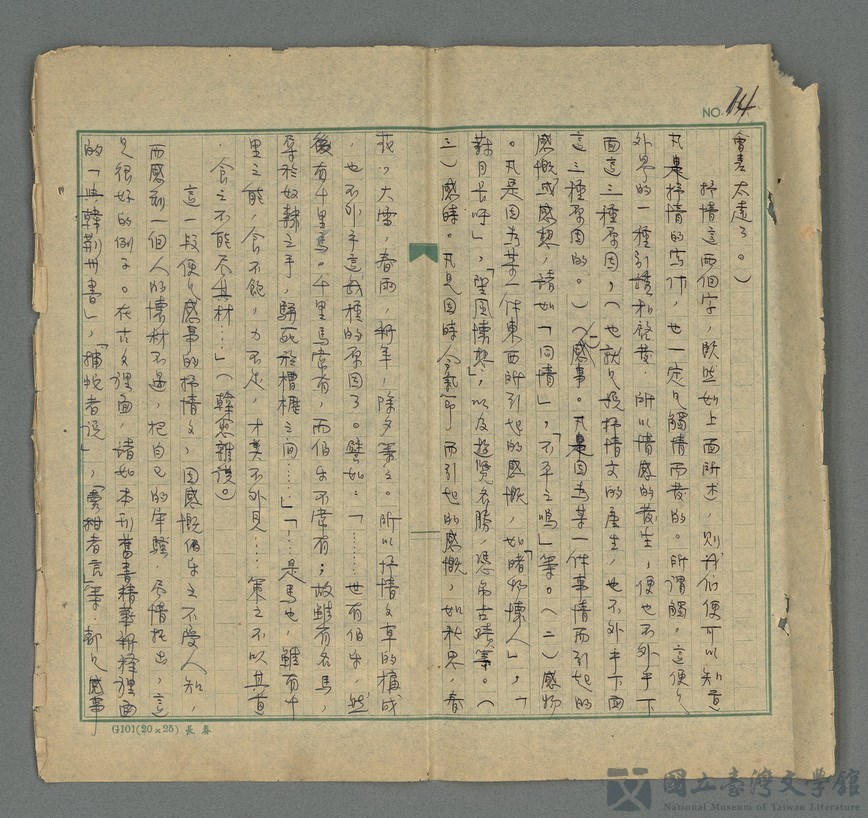 NO. 14
會差太遠了。）
抒情這兩個字，既然如上面所述，則我們便可以知道
凡是抒情的寫作，也一定是觸情而發的。所謂觸，這便是
外界的一種引誘和啟發，所以情感的發生，便也不外乎下
面這三種原因，（也就是說抒情文的產生，也不外乎下面
這三種原因的。）（一）感事。凡是因為某一件事情而引起的
感慨或感想，諸如「同情」，「不平之鳴」等。（二）感物
。凡是因為某一件東西所引起的感慨，如「睹物懷人」，「
對月長吁」，「望風懷想」，以及遊覽名勝，憑弔古蹟等。（
三）感時。凡是因時令氣節而引起的感慨，如秋思，春
花，大雪，春雨，新年，除夕等之。所以抒情文章的構成
，也不外乎這幾種的原因了。譬如：「……世有伯乐，然
後有千里馬。千里馬常有，而伯乐不常有；故雖有名馬，
辱於奴隸之手，駢死於槽櫪之間……」「…是馬也，雖有千
里之能，食不飽，力不足，才美不外見……策之不以其道
，食之不能尽其材…」（韓愈雜說。）
這一段便是感事的抒情文，因感慨伯乐之不受人知，
而感到一個人的懷材不遇，把自己的牢騷，尽情托出，這
是很好的例子。在古文裡面，諸如本刊舊書精華新釋裡面
的「與韓荊州書」，「捕蛇者說」，「賣柑者言」等，都是感事
G101(20×25) 長春
國立臺灣文學館
National Museum of Taiwan Literature